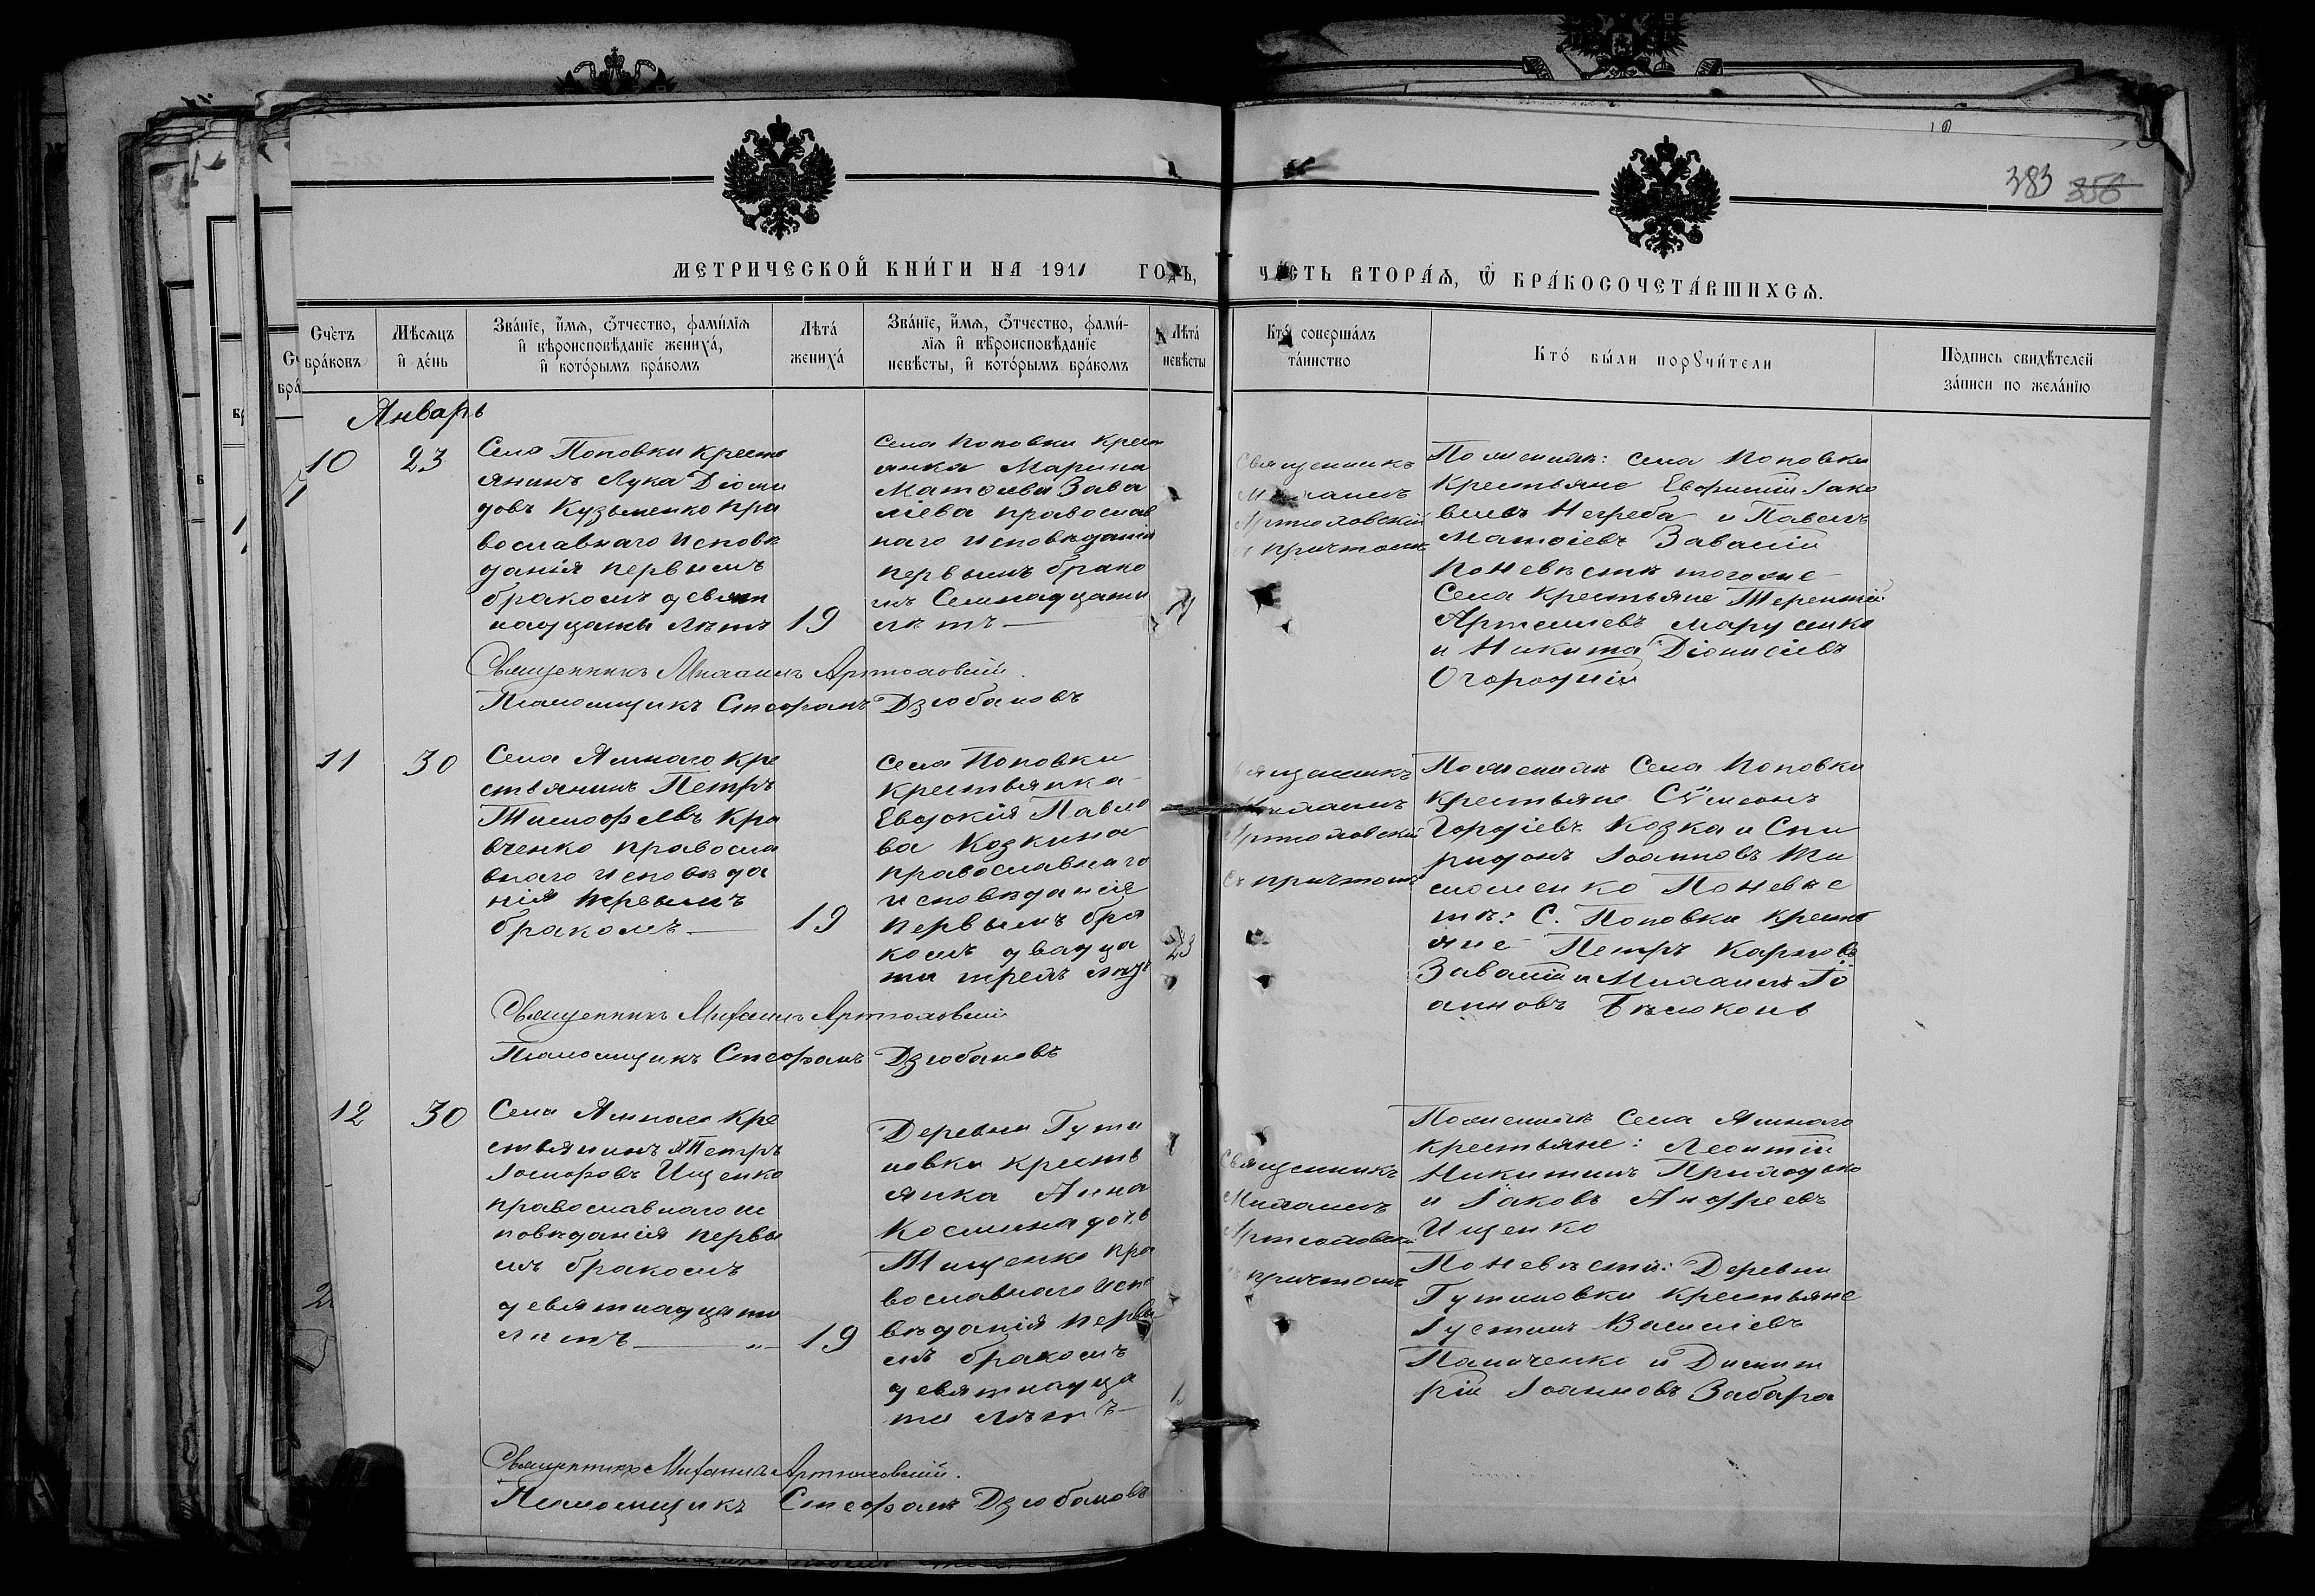 383 356
МЕТРИЧЕСКОЙ КНИ́ГИ НА 1911 ГОДЪ,
ЧАСТЬ ВТОРА́Я, Ѿ БРА́КОСОЧЕТА́ВШИХСЯ.
Счетъ
бра́ковъ
Мѣсяцъ
и де́нь
Зва́ніе, и́мя, ѻ́тчество, фами́лія
и вѣроисповѣданіе жениха́,
и кото́рымъ бра́комъ
Лѣта́
жениха́
Зва́ніе, и́мя, ѻ́тчество, фами́-
лія и вѣроисповѣданіе
невѣсты, и кото́рымъ бра́комъ
Лѣта́
невѣсты
Кто́ соверша́лъ
та́инство
Кто́ бы́ли порꙋчи́тели
По́дпись свидѣтелей
за́писи по жела́нію
Январь
10
23
Села Поповки кресть
янинъ Лука Діоми
довъ Кузьменко пра
вославнаго исповѣ
данія первымъ
бракомъ девят
надцати лѣтъ
19
Села Поповки крест
янка Марина
Матѳіева Зава
ліева православ
наго исповѣданія
первымъ брако
мъ Семнадцати
лѣтъ
Священникъ
Михаилъ
Артюховскій
съ причтомъ
По женихѣ: Села Поповки
крестьяне Евфимій Іако
влевъ Негреба и Павелъ
Матѳіевъ Завалій
По невѣстѣ того же
Села крестьяне Терентій
Артемиевъ Марусико
и Никита Діонисіевъ
Огородній
Священникъ Михаилъ Артюховскій.
Псаломщикъ Стефанъ Дзюбановъ
11
30
Села Ямнаго кре
стьянинъ Петръ
Тимофѣевъ Кра
вченко правосла
внаго исповѣда
нія первымъ
бракомъ
19
Села Поповки
крестьянка
Евдокія Павло
ва Козкина
православнаго
исповѣданія
первымъ бра
комъ двадца
ти трехъ лѣтъ
23
Священникъ
Михаилъ
Артюховскій
съ причтомъ
По женихѣ Села Поповки
крестьяне Сѵмеонъ
Гордіевъ Козка и Спи
ридонъ Іоанновъ Ти
мошенко По невѣс
тѣ: С. Поповки кресть
яне Петръ Карповъ
Завалій и Михаилъ Іо
анновъ Бѣлоконь
Священникъ Михаилъ Артюховскій
Псаломщикъ Стефанъ Дзюбановъ
12
30
Села Ямнаго кре
стьянинъ Петръ
Іосифовъ Ищенко
православнаго ис
повѣданія первы
мъ бракомъ
девятнадцати
лѣтъ
19
Деревни Гути
новки кресть
янка Анна
Космина дочь
Тищенко пра
вославнаго испо
вѣданія первы
мъ бракомъ
девятнадца
ти лѣтъ
Священникъ
Михаилъ
Артюховскій
съ причтомъ
По женихѣ Села Ямнаго
крестьяне: Леонтій
Никитинъ Приходько
и Іаковъ Андреевъ
Ищенко
По невѣстѣ: Деревни
Гутиновки крестьяне
Іустинъ Василіевъ
Панченко и Димит
рій Іоанновъ Забара
Священникъ Михаилъ Артюховскій.
Псаломщикъ Стефанъ Дзюбановъ